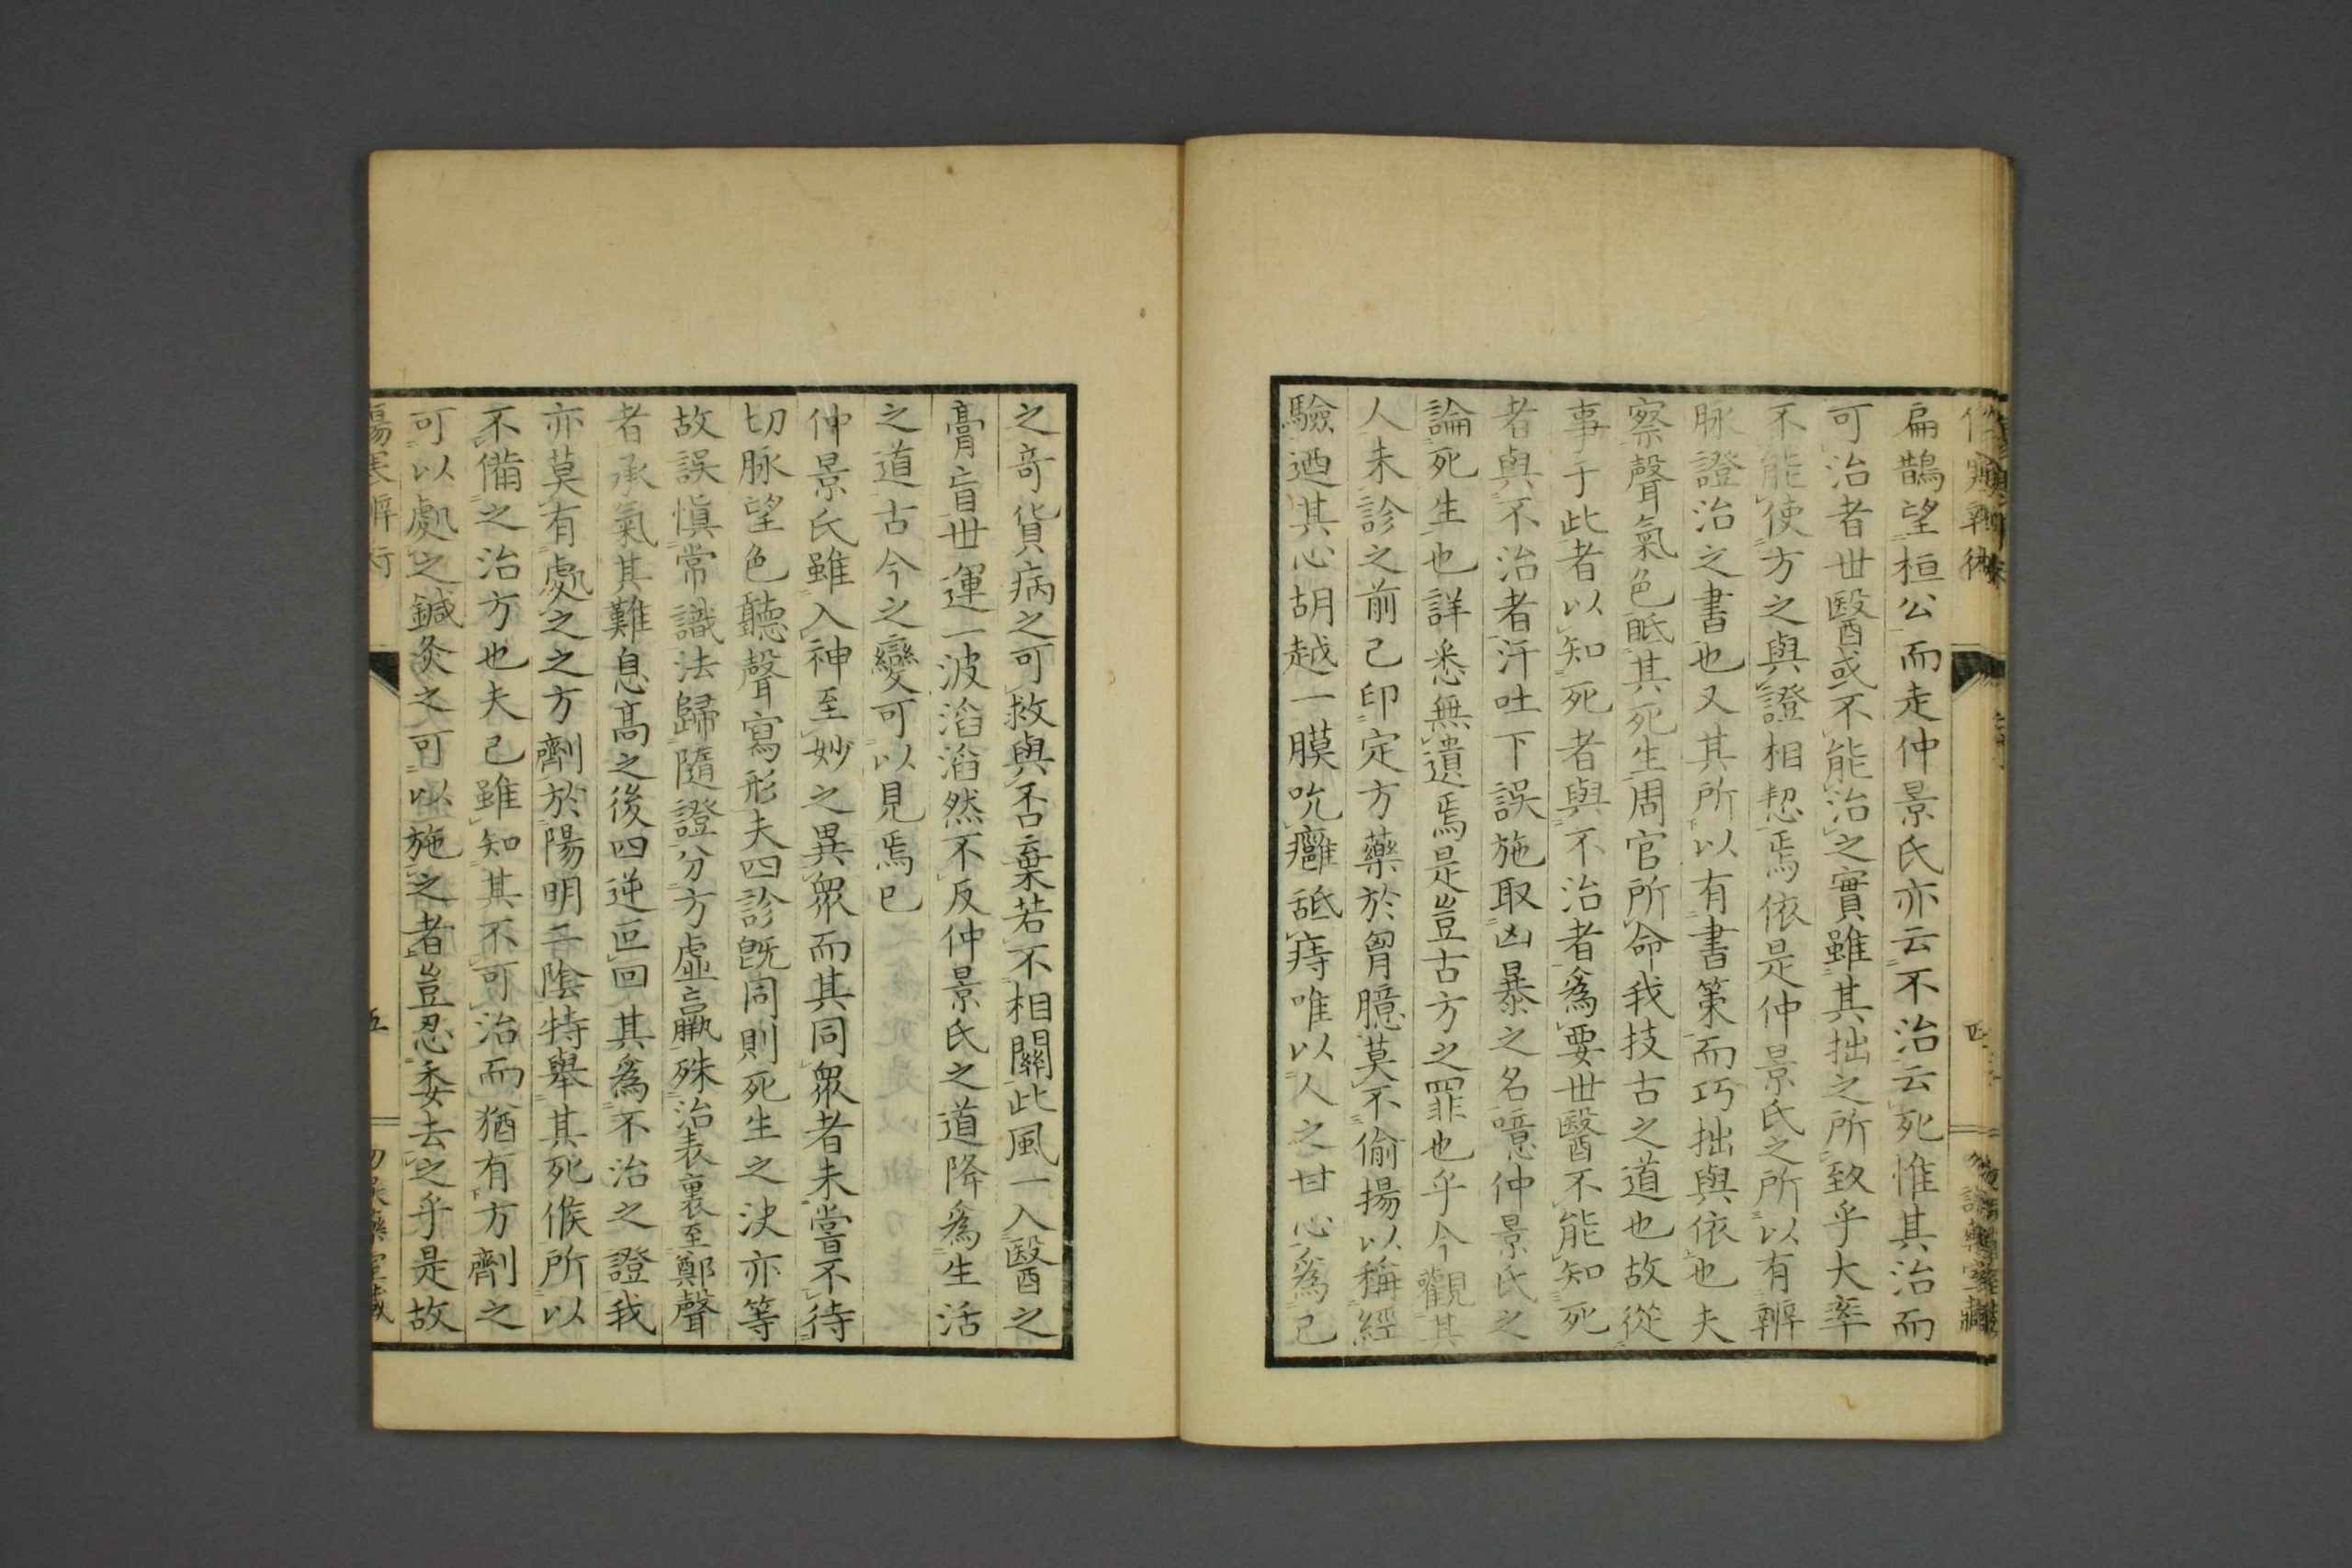 扁鵲望桓公而走仲景氏亦云不治云死惟其治而
可治者世醫或不能治之實雖其拙之所致乎大率
不能使方之與證相恝焉依是仲景氏之所以有辨
脉證治之書也又其所以有書策而巧拙與依也夫
察聲氣色眂其死生周官所命我技古之道也故從
事于此者以知死者與不治者爲要世醫不能知死
者與不治者汗吐下誤施取凶暴之名噫仲景氏之
論死生也詳悉無遺焉是豈古方之罪也乎今觀其
人未診之前已印定方藥於胷臆莫不偷揚以稱經
驗迺其心胡越一膜吮癰舐痔唯以人之甘心爲己
之奇貨病之可救與否棄若不相關此風一入醫之
膏盲世運一波滔滔然不反仲景氏之道降爲生活
之道古今之變可以見焉已
仲景氏雖入神至妙之異衆而其同衆者未嘗不待
切脉望色聽聲寫形夫四診既同則死生之決亦等
故誤愼常識法歸隨證分方虛羸殊治表裏至鄭聲
者承氣其難息高之後四逆叵回其爲不治之證我
亦莫有處之之方劑於陽明二陰特舉其死候所以
不備之治方也夫已雖知其不可治而猶有方劑之
可以處之鍼灸之可以施之者豈忍委去之乎是故
五